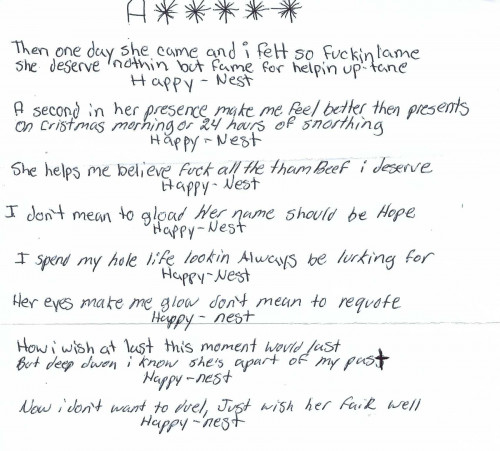 A*****
Then one day she came and i felt so fuckin lame
she deserve nothin but fame for helpin up-tane
Happy-Nest
A second in her presence make me feel better then presents
on cristmas morning or 24 hours of snorthing
Happy-Nest
She helps me believe fuck all the tham Beef i deserve
Happy-Nest
I don't mean to gload Her name should be Hope
Happy-Nest
I spend my hole life lookin Always be lurking for
Happy-Nest
Her eyes make me glow don't mean to requote
Happy-nest
How i wish at last this moment would last
But deep dwen i know she's apart of my past
Happy-nest
Now i don't want to duel, Just wish her fair well
Happy-nest